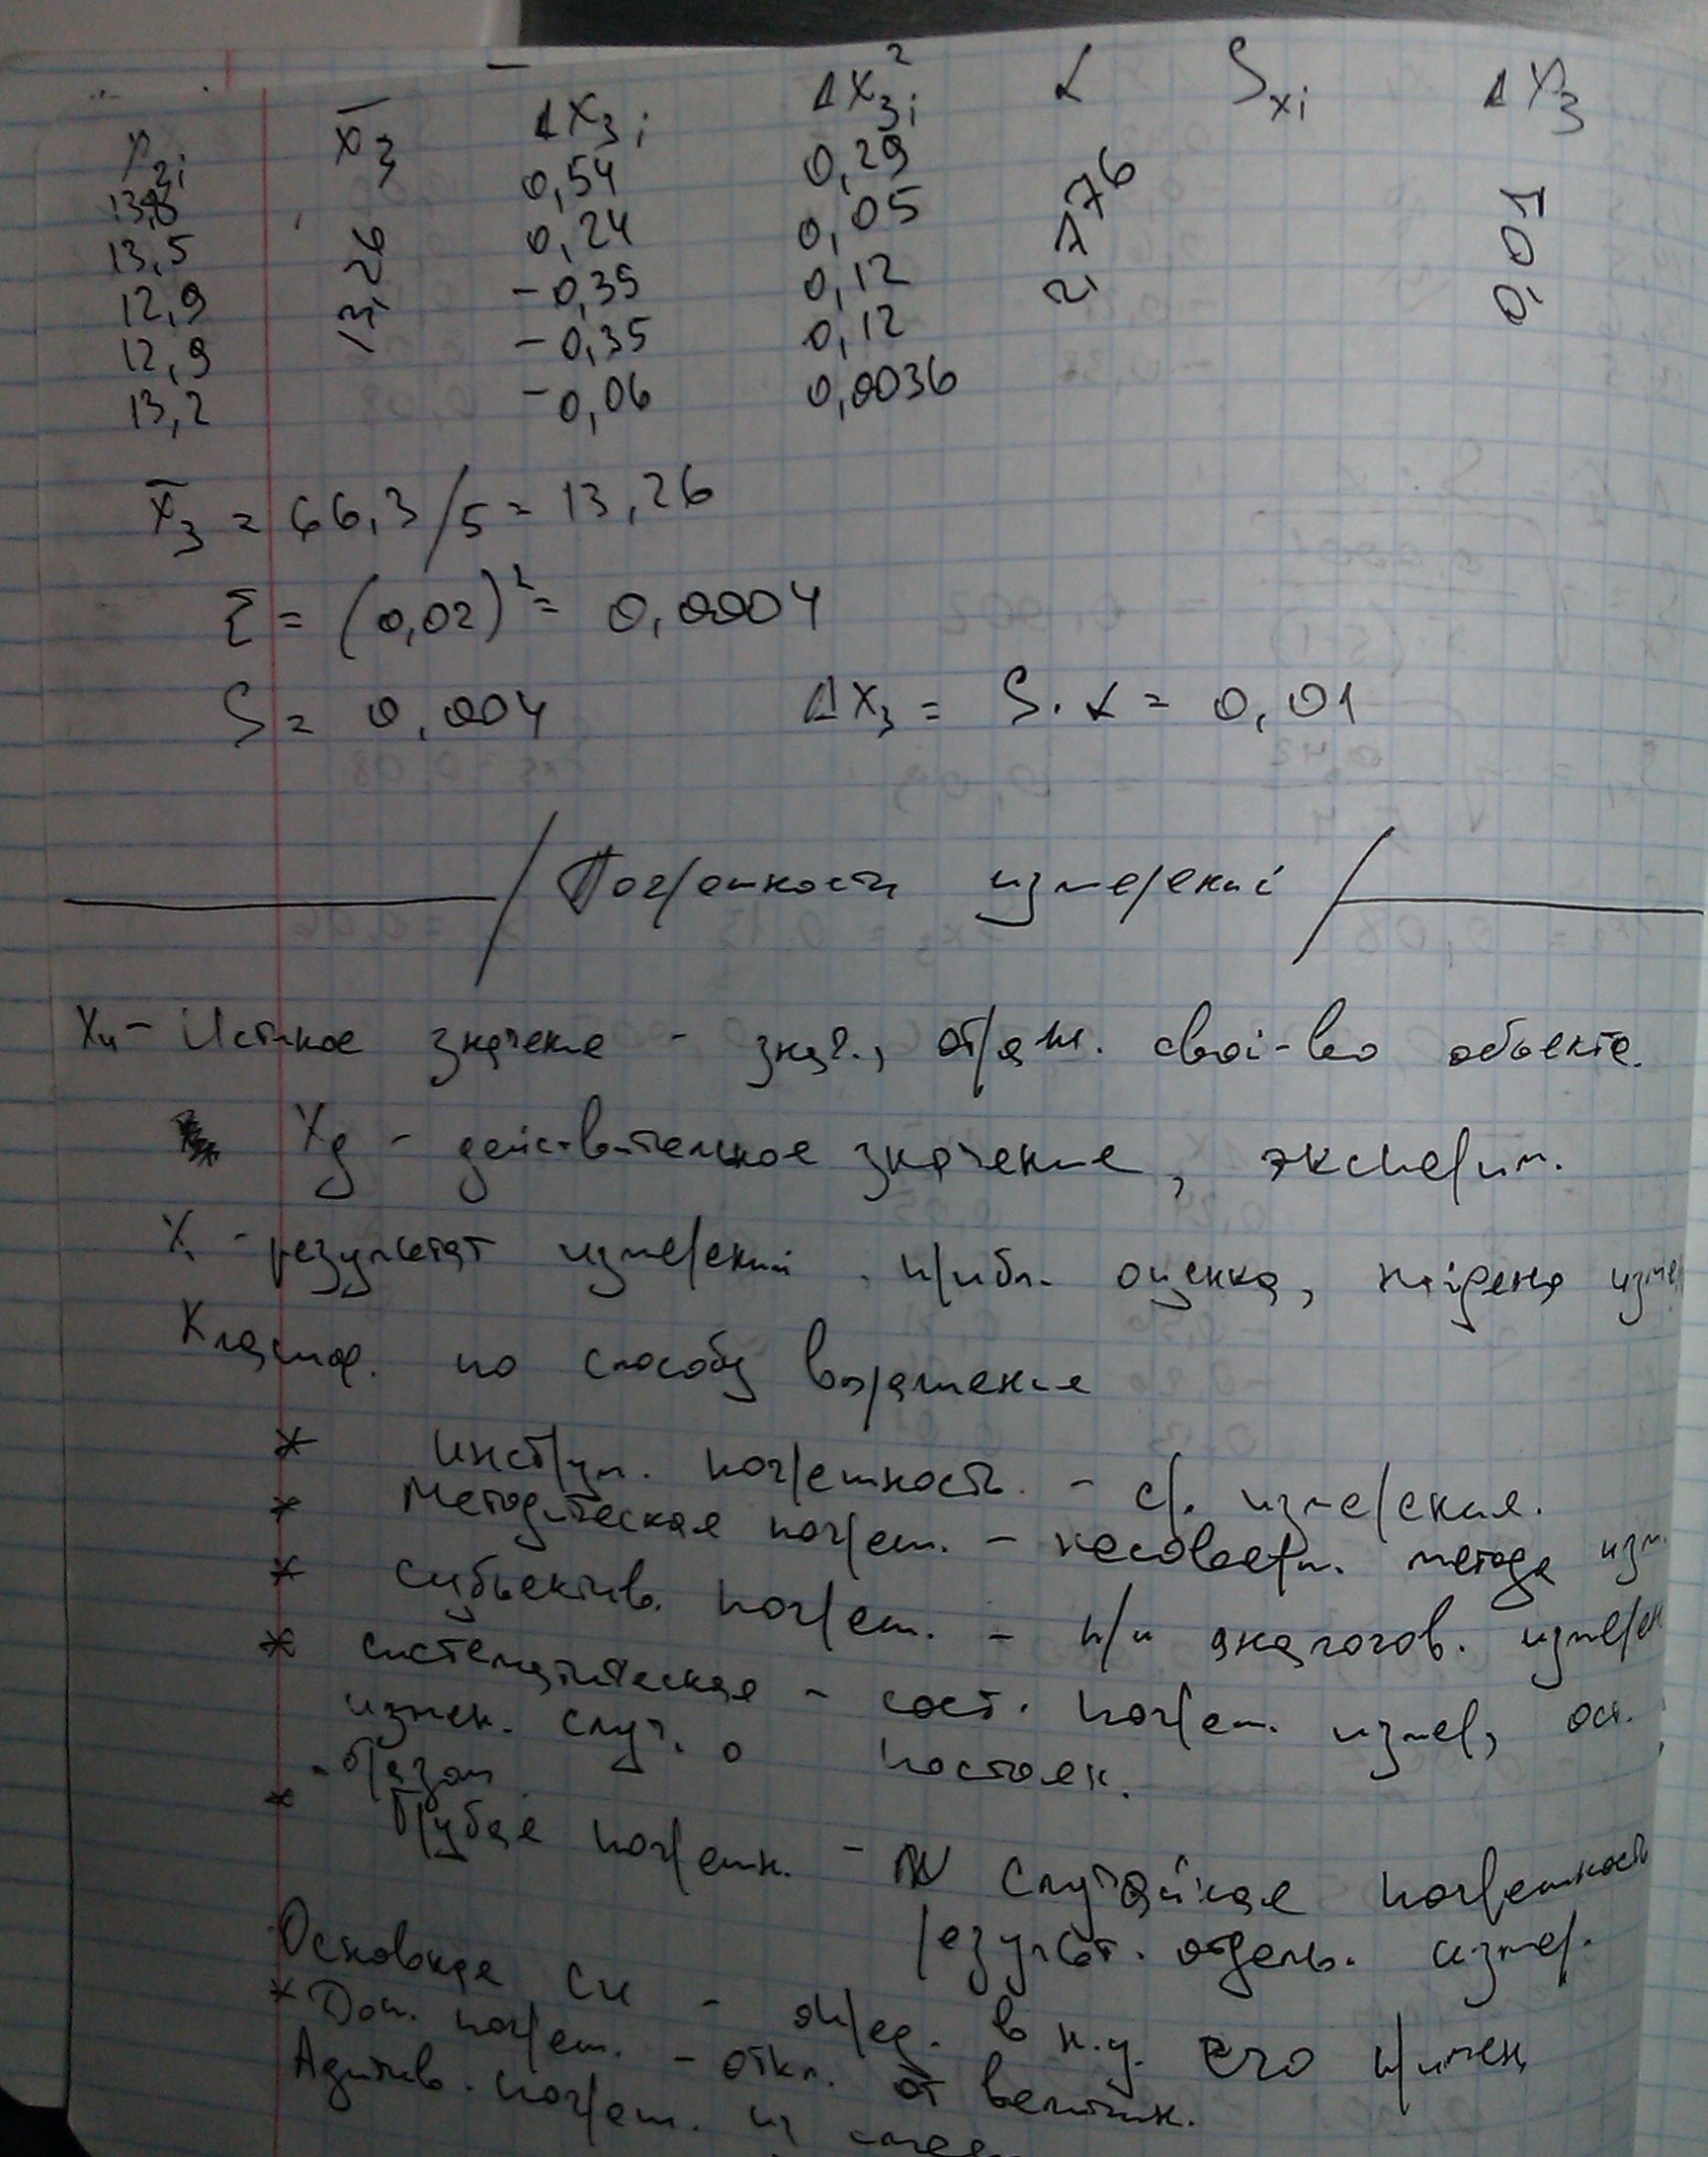 x₃ᵢ x̄₃ Δx₃ᵢ Δx₃ᵢ² α Sxi Δx₃
13,8 13,26 0,54 0,29 2,776 0,01
13,5 0,24 0,05
12,9 -0,35 0,12
12,9 -0,35 0,12
13,2 -0,06 0,0036
x̄₃ = 66,3/5 = 13,26
Σ = (0,02)² = 0,0004
S = 0,004 Δx₃ = S·α = 0,01
Погрешности измерений
Xи - Истиное значение - знач., отраж. свой-во объекта.
Xд - действительное значение, эксперим.
X - результат измерений. прибл. оценка, найдена измер
Классиф. по способу выражения
* Инструм. погрешность. - ср. измерения.
* Методическая погреш. - несоверш. метода изм.
* субъектив. погреш. - при аналогов. измерен
* систематическая - сост. погреш. измер, ост. постоян.
измен. случ. образом
* Грубая погрешн. - случайная погрешность
результ. отдель. измер.
Основная СИ - опред. в н.у. его примен
* Доп. погреш. - откл. от величин.
Адитив. погреш.